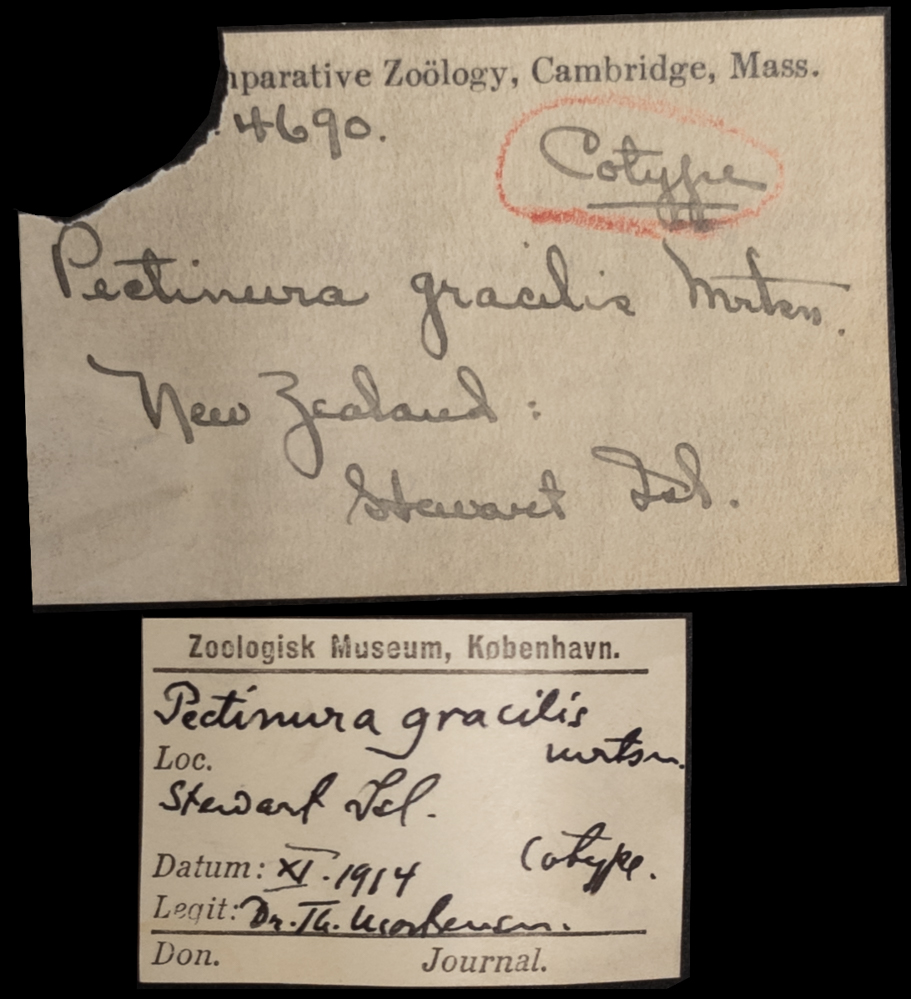 mparative Zoölogy, Cambridge, Mass.
. 4690.
Cotype
Pectinura gracilis Mrtsn.
New Zealand:
Stewart Isl.
Zoologisk Museum, København.
Pectinura gracilis
mrtsn.
Loc.
Stewart Isl.
Cotype.
Datum: XI. 1914
Legit: Dr. Th. Mortensen.
Don. Journal.